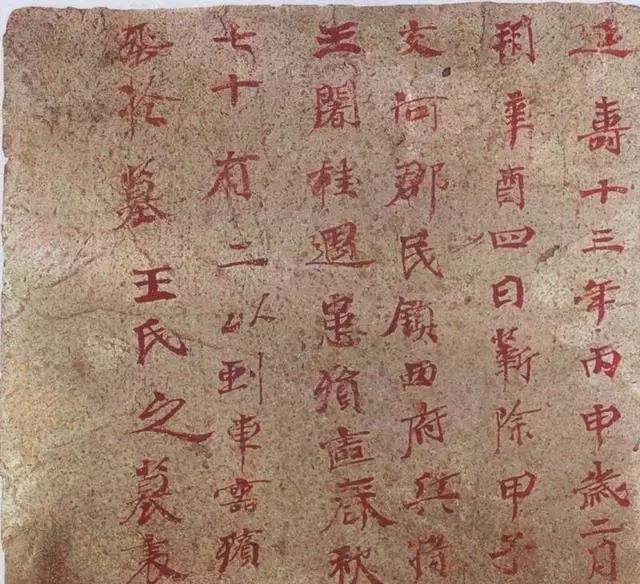 延壽十三年丙申歲二月
朔辛酉四日蘄除甲子
交河郡民鎮西府兵將
王闍桂遇患殞喪春秋
七十有二以車靈殯
葬於墓王氏之墓表